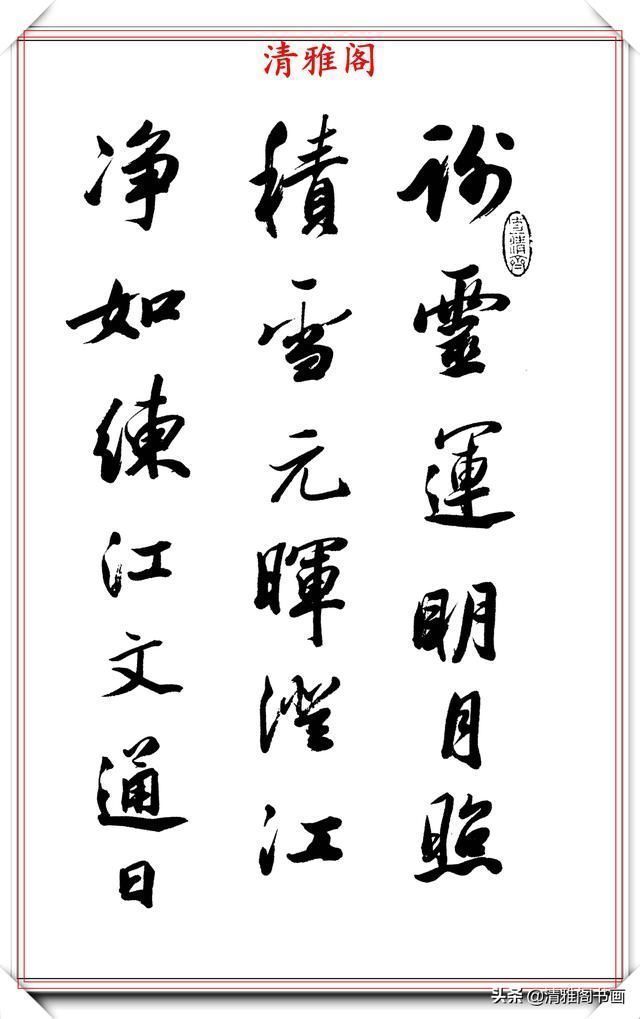 清雅阁
謝靈運明月照
積雪元暉澄江
净如練江文通日
头条@清雅阁书画